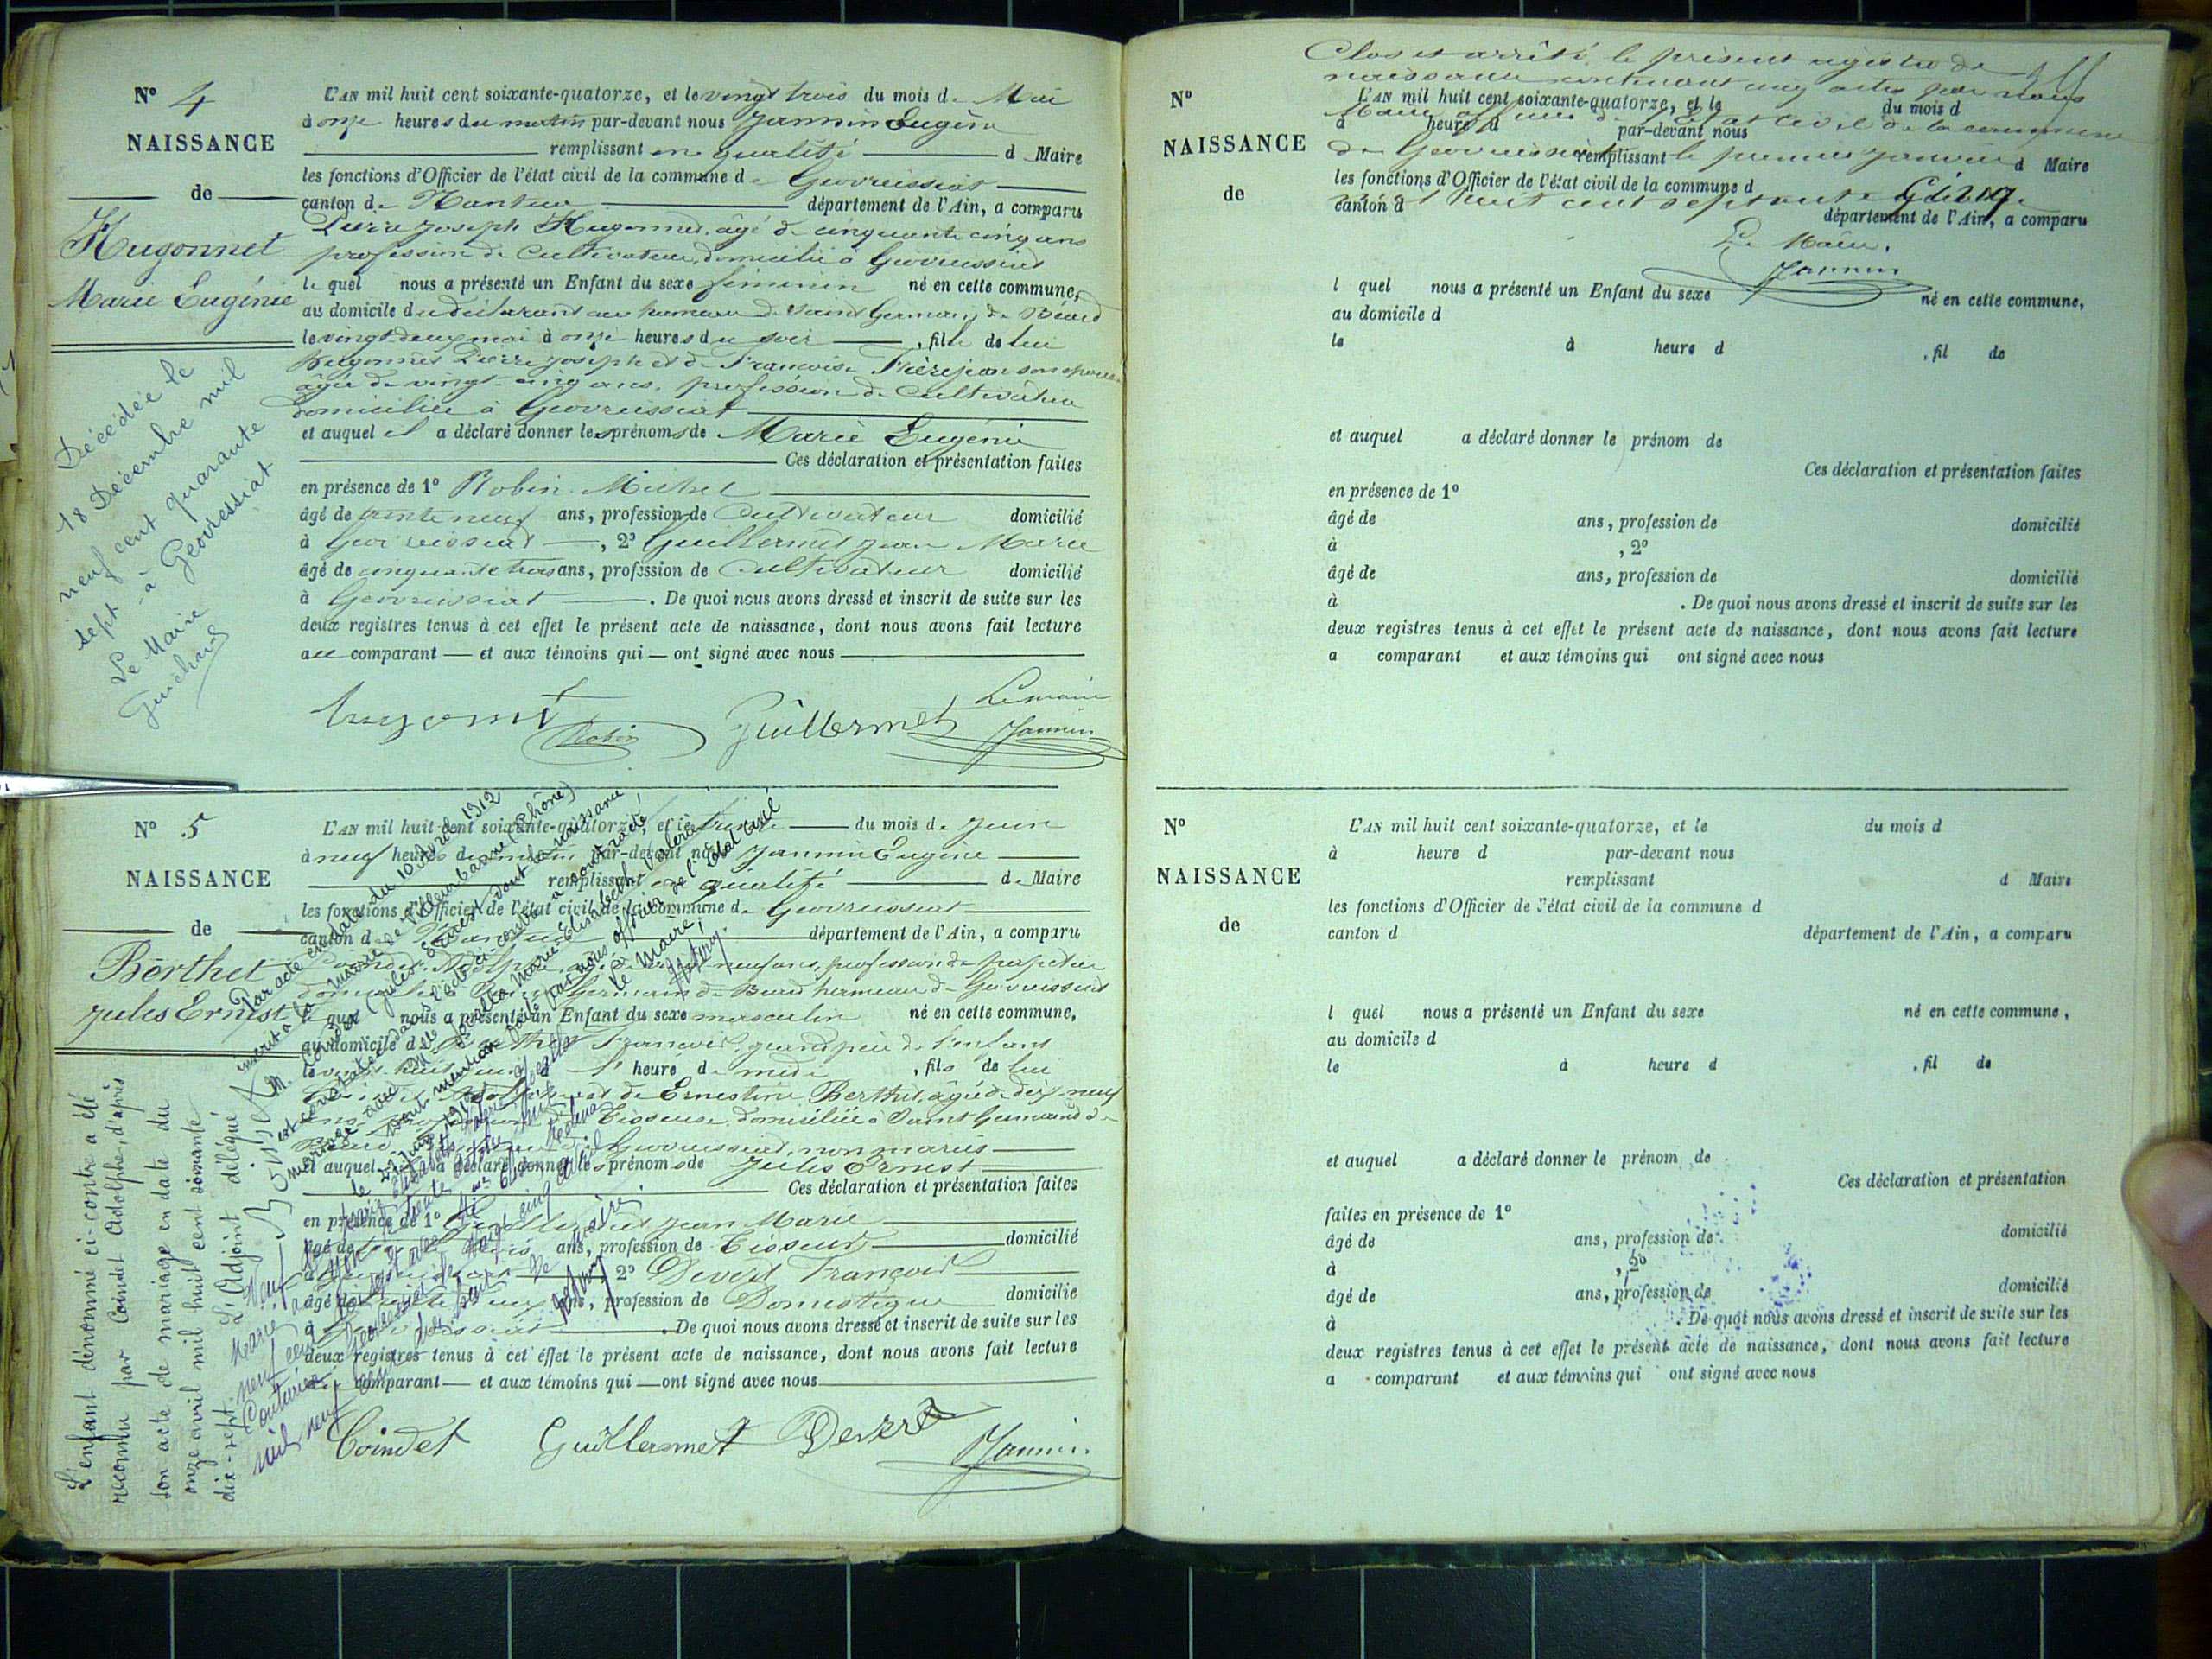 N° 4
NAISSANCE
de
Hugonnet
Marie Eugénie
L'AN mil huit cent soixante-quatorze, et le vingt trois du mois de Mai
à onze heures du matin par-devant nous Jannin Eugène
remplissant en qualité de Maire
les fonctions d'Officier de l'état civil de la commune de Geovreissiat
canton de Nantua département de l'Ain, a comparu
Pierre Joseph Hugonnet, âgé de cinquante cinq ans
profession de Cultivateur, domicilié à Geovreissiat
le quel nous a présenté un Enfant du sexe féminin né en cette commune,
au domicile du déclarant au hameau de Saint Germain de Beard
le vingt deux mai à onze heures du soir, fille de lui
Hugonnet Pierre Joseph et de Francoise son épouse
âgée de vingt-cinq ans, profession de Cultivateur
domiciliée à Geovreissiat
et auquel il a déclaré donner les prénoms de Marie Eugénie
Ces déclaration et présentation faites
en présence de 1° Robin Michel
âgé de trente neuf ans, profession de Cultivateur domicilié
à Geovreissiat, 2° Guillermet Jean Marie
âgé de cinquante trois ans, profession de Cultivateur domicilié
à Geovreissiat. De quoi nous avons dressé et inscrit de suite sur les
deux registres tenus à cet effet le présent acte de naissance, dont nous avons fait lecture
au comparant — et aux témoins qui — ont signé avec nous
Hugonnet Robin Guillermet Le maire
Jannin
Décédée le
18 Décembre mil
neuf cent quarante
sept à Géovressiat
Le Maire
Guichard
N° 5
NAISSANCE
de
Berthet
Jules Ernest
L'AN mil huit cent soixante-quatorze, et le trente du mois de Juin
à neuf heures du matin par-devant nous Jannin Eugène
remplissant en qualité de Maire
les fonctions d'Officier de l'état civil de la commune de Geovreissiat
canton de Nantua département de l'Ain, a comparu
Coindet Adolphe, neuf ans, profession de
domicilié à Saint Germain de Beard hameau de Geovreissiat
le quel nous a présenté un Enfant du sexe masculin né en cette commune,
au domicile de Berthet François, grand père de l'enfant
le vingt huit juin à 1 heure de midi, fils de lui
et de Ernestine Berthet, âgée de dix-neuf
ans, profession de Tisseuse, domiciliée à Saint Germain de
Beard, Geovreissiat, non mariés
et auquel il a déclaré donner les prénoms de Jules Ernest
Ces déclaration et présentation faites
en présence de 1° Guillermet Jean Marie
âgé de ans, profession de Tisseur domicilié
à Geovreissiat 2° Devert François
âgé de ans, profession de Domestique domicilié
à Geovreissiat. De quoi nous avons dressé et inscrit de suite sur les
deux registres tenus à cet effet le présent acte de naissance, dont nous avons fait lecture
au comparant — et aux témoins qui — ont signé avec nous
Coindet Guillermet Devert
Jannin
L'enfant dénommé ci-contre a été
reconnu par Coindet Adolphe, d'après
son acte de mariage en date du
onze avril mil huit cent soixante
dix-sept.
L'Adjoint délégué
Par acte en date du 10 Avril 1912
inscrit à la mairie de Villeurbanne (Rhône)
M. Coindet (Jules Ernest) dont la naissance
est constatée dans l'acte ci-contre a contracté
mariage avec Mlle Marie Elisabeth Valérie
dont mention faite par nous officier de l'état civil
le Maire,
Clos et arrêté le présent registre de
naissance contenant cinq actes par nous
Maire officier de l'État civil de la commune
de Geovreissiat le premier janvier
mil huit cent septante cinq.
Le Maire.
Jannin
N°
NAISSANCE
de
L'AN mil huit cent soixante-quatorze, et le du mois d
à heure d par-devant nous
remplissant d Maire
les fonctions d'Officier de l'état civil de la commune d
canton d département de l'Ain, a comparu
l quel nous a présenté un Enfant du sexe né en cette commune,
au domicile d
le à heure d , fil de
et auquel a déclaré donner le prénom de
Ces déclaration et présentation faites
en présence de 1°
âgé de ans, profession de domicilié
à , 2°
âgé de ans, profession de domicilié
à . De quoi nous avons dressé et inscrit de suite sur les
deux registres tenus à cet effet le présent acte de naissance, dont nous avons fait lecture
a comparant et aux témoins qui ont signé avec nous
N°
NAISSANCE
de
L'AN mil huit cent soixante-quatorze, et le du mois d
à heure d par-devant nous
remplissant d Maire
les fonctions d'Officier de l'état civil de la commune d
canton d département de l'Ain, a comparu
l quel nous a présenté un Enfant du sexe né en cette commune,
au domicile d
le à heure d , fil de
et auquel a déclaré donner le prénom de
Ces déclaration et présentation
faites en présence de 1°
âgé de ans, profession de domicilié
à , 2°
âgé de ans, profession de domicilié
à . De quoi nous avons dressé et inscrit de suite sur les
deux registres tenus à cet effet le présent acte de naissance, dont nous avons fait lecture
a comparant et aux témoins qui ont signé avec nous